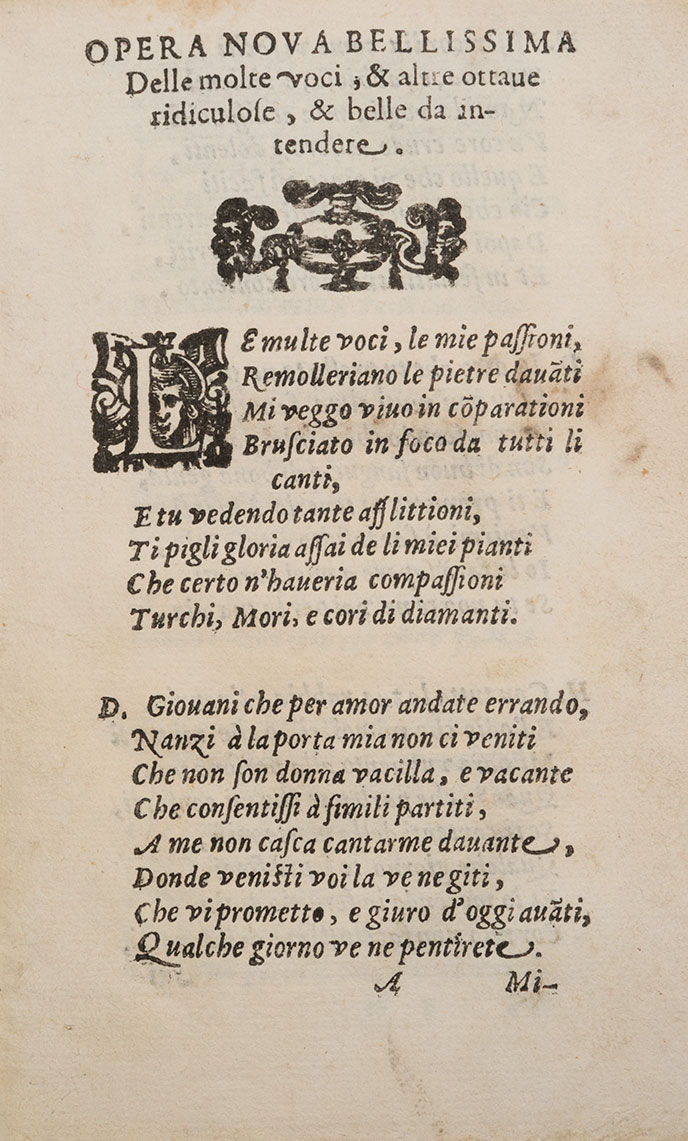 OPERA NOVA BELLISSIMA
Delle molte voci, & altre ottaue
ridiculoſe, & belle da in-
tendere.
LE multe voci, le mie paſſioni,
Remolleriano le pietre dauãti
Mi veggo viuo in cõparationi
Bruſciato in foco da tutti li
canti,
E tu vedendo tante afflittioni,
Ti pigli gloria aſſai de li miei pianti
Che certo n'haueria compaſſioni
Turchi, Mori, e cori di diamanti.
D. Giouani che per amor andate errando,
Nanzi à la porta mia non ci veniti
Che non ſon donna vacilla, e vacante
Che conſentiſſi à ſimili partiti,
A me non caſca cantarme dauante,
Donde veniſti voi la ve ne giti,
Che vi prometto, e giuro d'oggi auãti,
Qualche giorno ve ne pentirete.
A Mi-